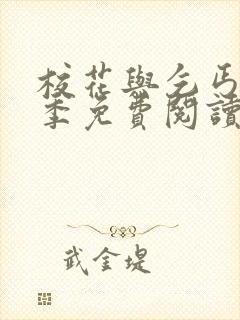 校花與乞丐
季免費閱讀
武金堤